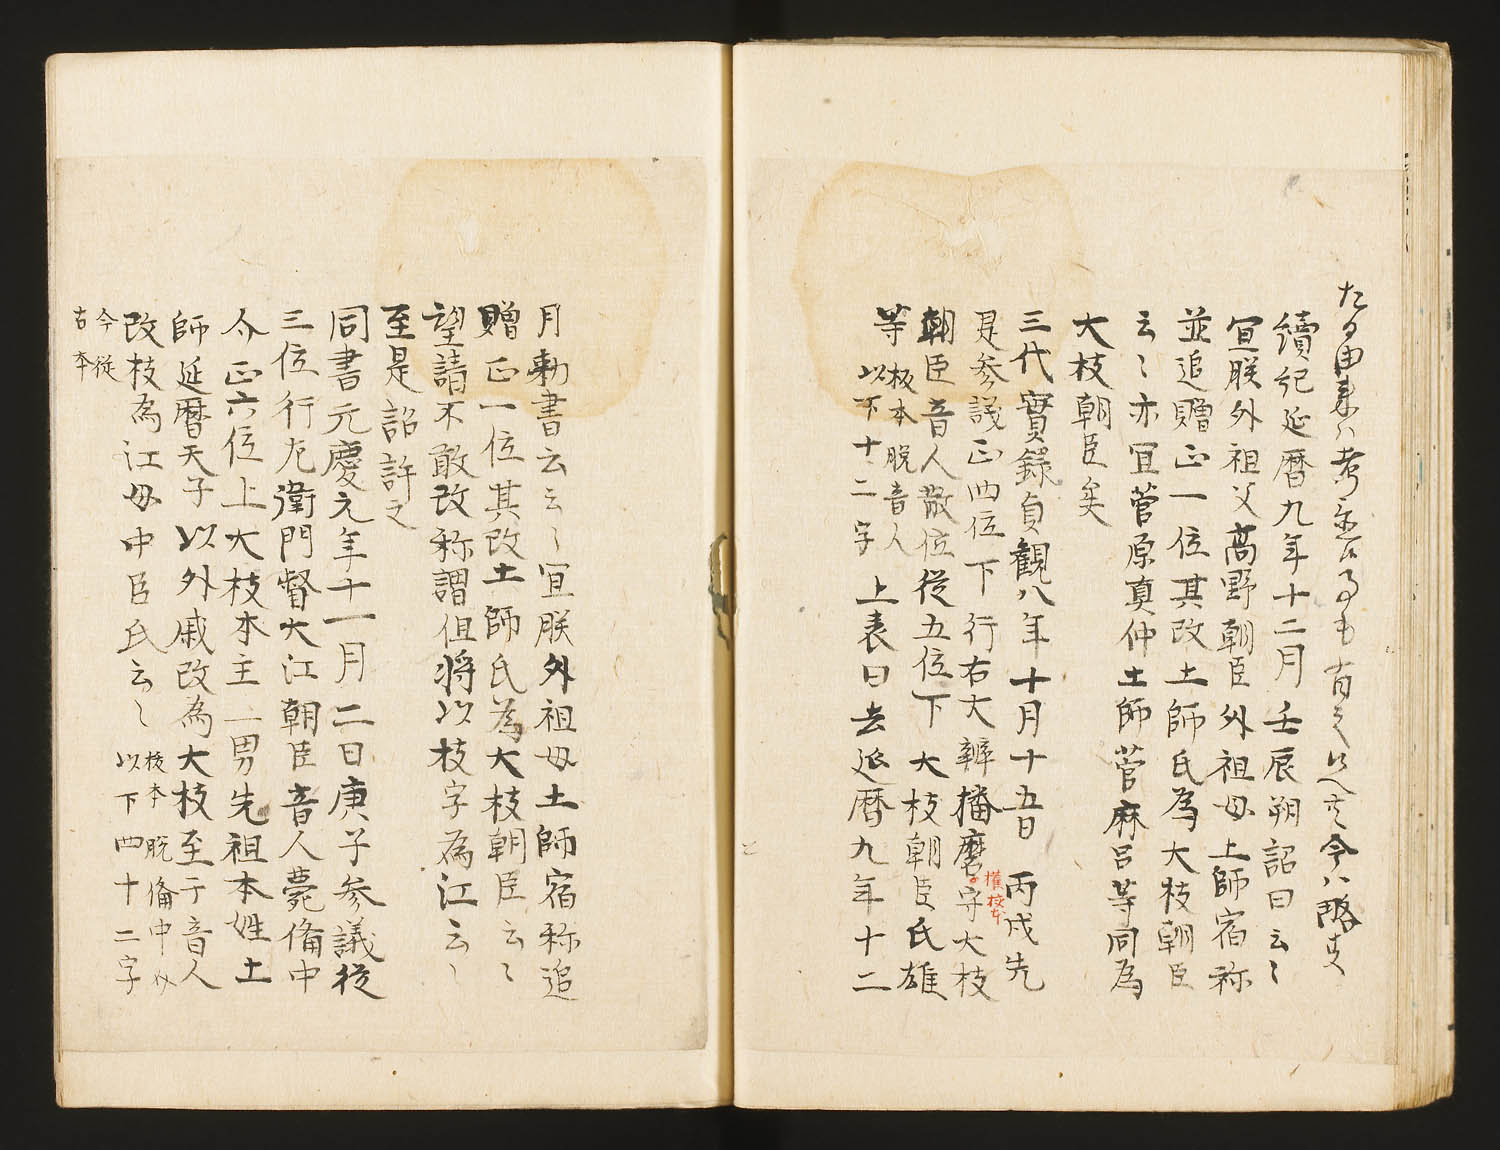 たる由来ハ考
續紀延暦九年十二月壬辰朔詔曰云〻
宜朕外祖父高野朝臣外祖母土師宿祢
並追贈正一位其改土師氏為大枝朝臣
云〻亦宜菅原真仲土師菅麻呂等同為
大枝朝臣矣
三代實録貞觀八年十月十五日丙戌先
是参議正四位下行右大辨播磨守大枝
權板本
朝臣音人散位従五位下大枝朝臣氏雄
等
板本脱音人
以下十二字
上表曰去延暦九年十二
月勅書云云〻宜朕外祖母土師宿祢追
贈正一位其改土師氏為大枝朝臣云〻
望請不敢改称謂但将以枝字為江云〻
至是詔許之
同書元慶元年十一月二日庚子参議従
三位行左衛門督大江朝臣音人薨備中
介正六位上大枝本主一男先祖本姓土
師延暦天子以外戚改為大枝至于音人
改枝為江母中臣氏云〻
板本脱備中以
以下四十二字
今従
古本